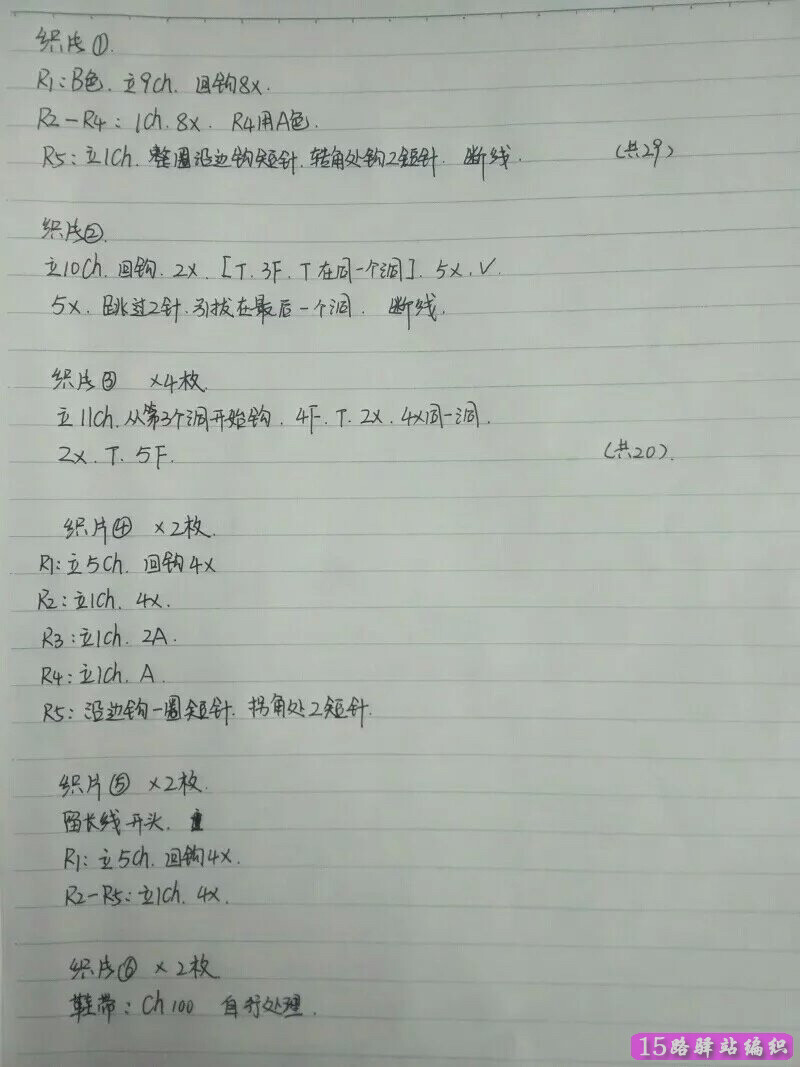 织片①.
R1:B色.立9ch.回钩8x.
R2-R4:1ch.8x.R4用A色.
R5:立1ch.整圈沿边钩短针.转角处钩2短针.断线.(共29)
织片②.
立10ch.回钩.2x.[T.3F.T在同一个洞].5x.V
5x.跳过2针.引拔在最后一个洞.断线.
织片③ ×4枚.
立11ch.从第3个洞开始钩.4F.T.2x.4x同一洞.
2x.T.5F.(共20).
织片④ ×2枚.
R1:立5ch.回钩4x
R2:立1ch.4x.
R3:立1ch.2A.
R4:立1ch.A.
R5:沿边钩一圈短针.拐角处2短针.
织片⑤ ×2枚.
留长线开头.
R1:立5ch.回钩4x.
R2-R5:立1ch.4x.
织片⑥ ×2枚
鞋带:ch100 自行处理.
15路驿站编织